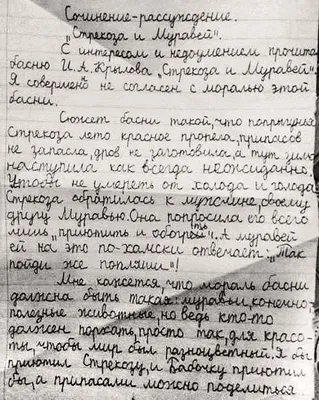 Сочинение-рассуждение.
„Стрекоза и Муравей".
С интересом и недоумением прочитал
басню И.А. Крылова „Стрекоза и Муравей".
Я совершенно не согласен с моралью этой
басни.
Сюжет басни такой, что попрыгунья
Стрекоза лето красное пропела, припасов
не запасла, дров не заготовила, а тут зима
наступила как всегда неожиданно.
Чтобы не умереть от холода и голода
Стрекоза обратилась к мужчине, своему
другу Муравью. Она попросила его всего
лишь „приютить и обогреть". А муравей
ей на это по-хамски отвечает: „Так
пойди же попляши"!
Мне кажется, что мораль басни
должна быть такая: муравьи, конечно,
полезные животные, но ведь кто-то
должен порхать, просто так, для красо-
ты, чтобы мир был разноцветный. Я бы
приютил Стрекозу, и Бабочку приютил
бы, а припасами можно поделиться.